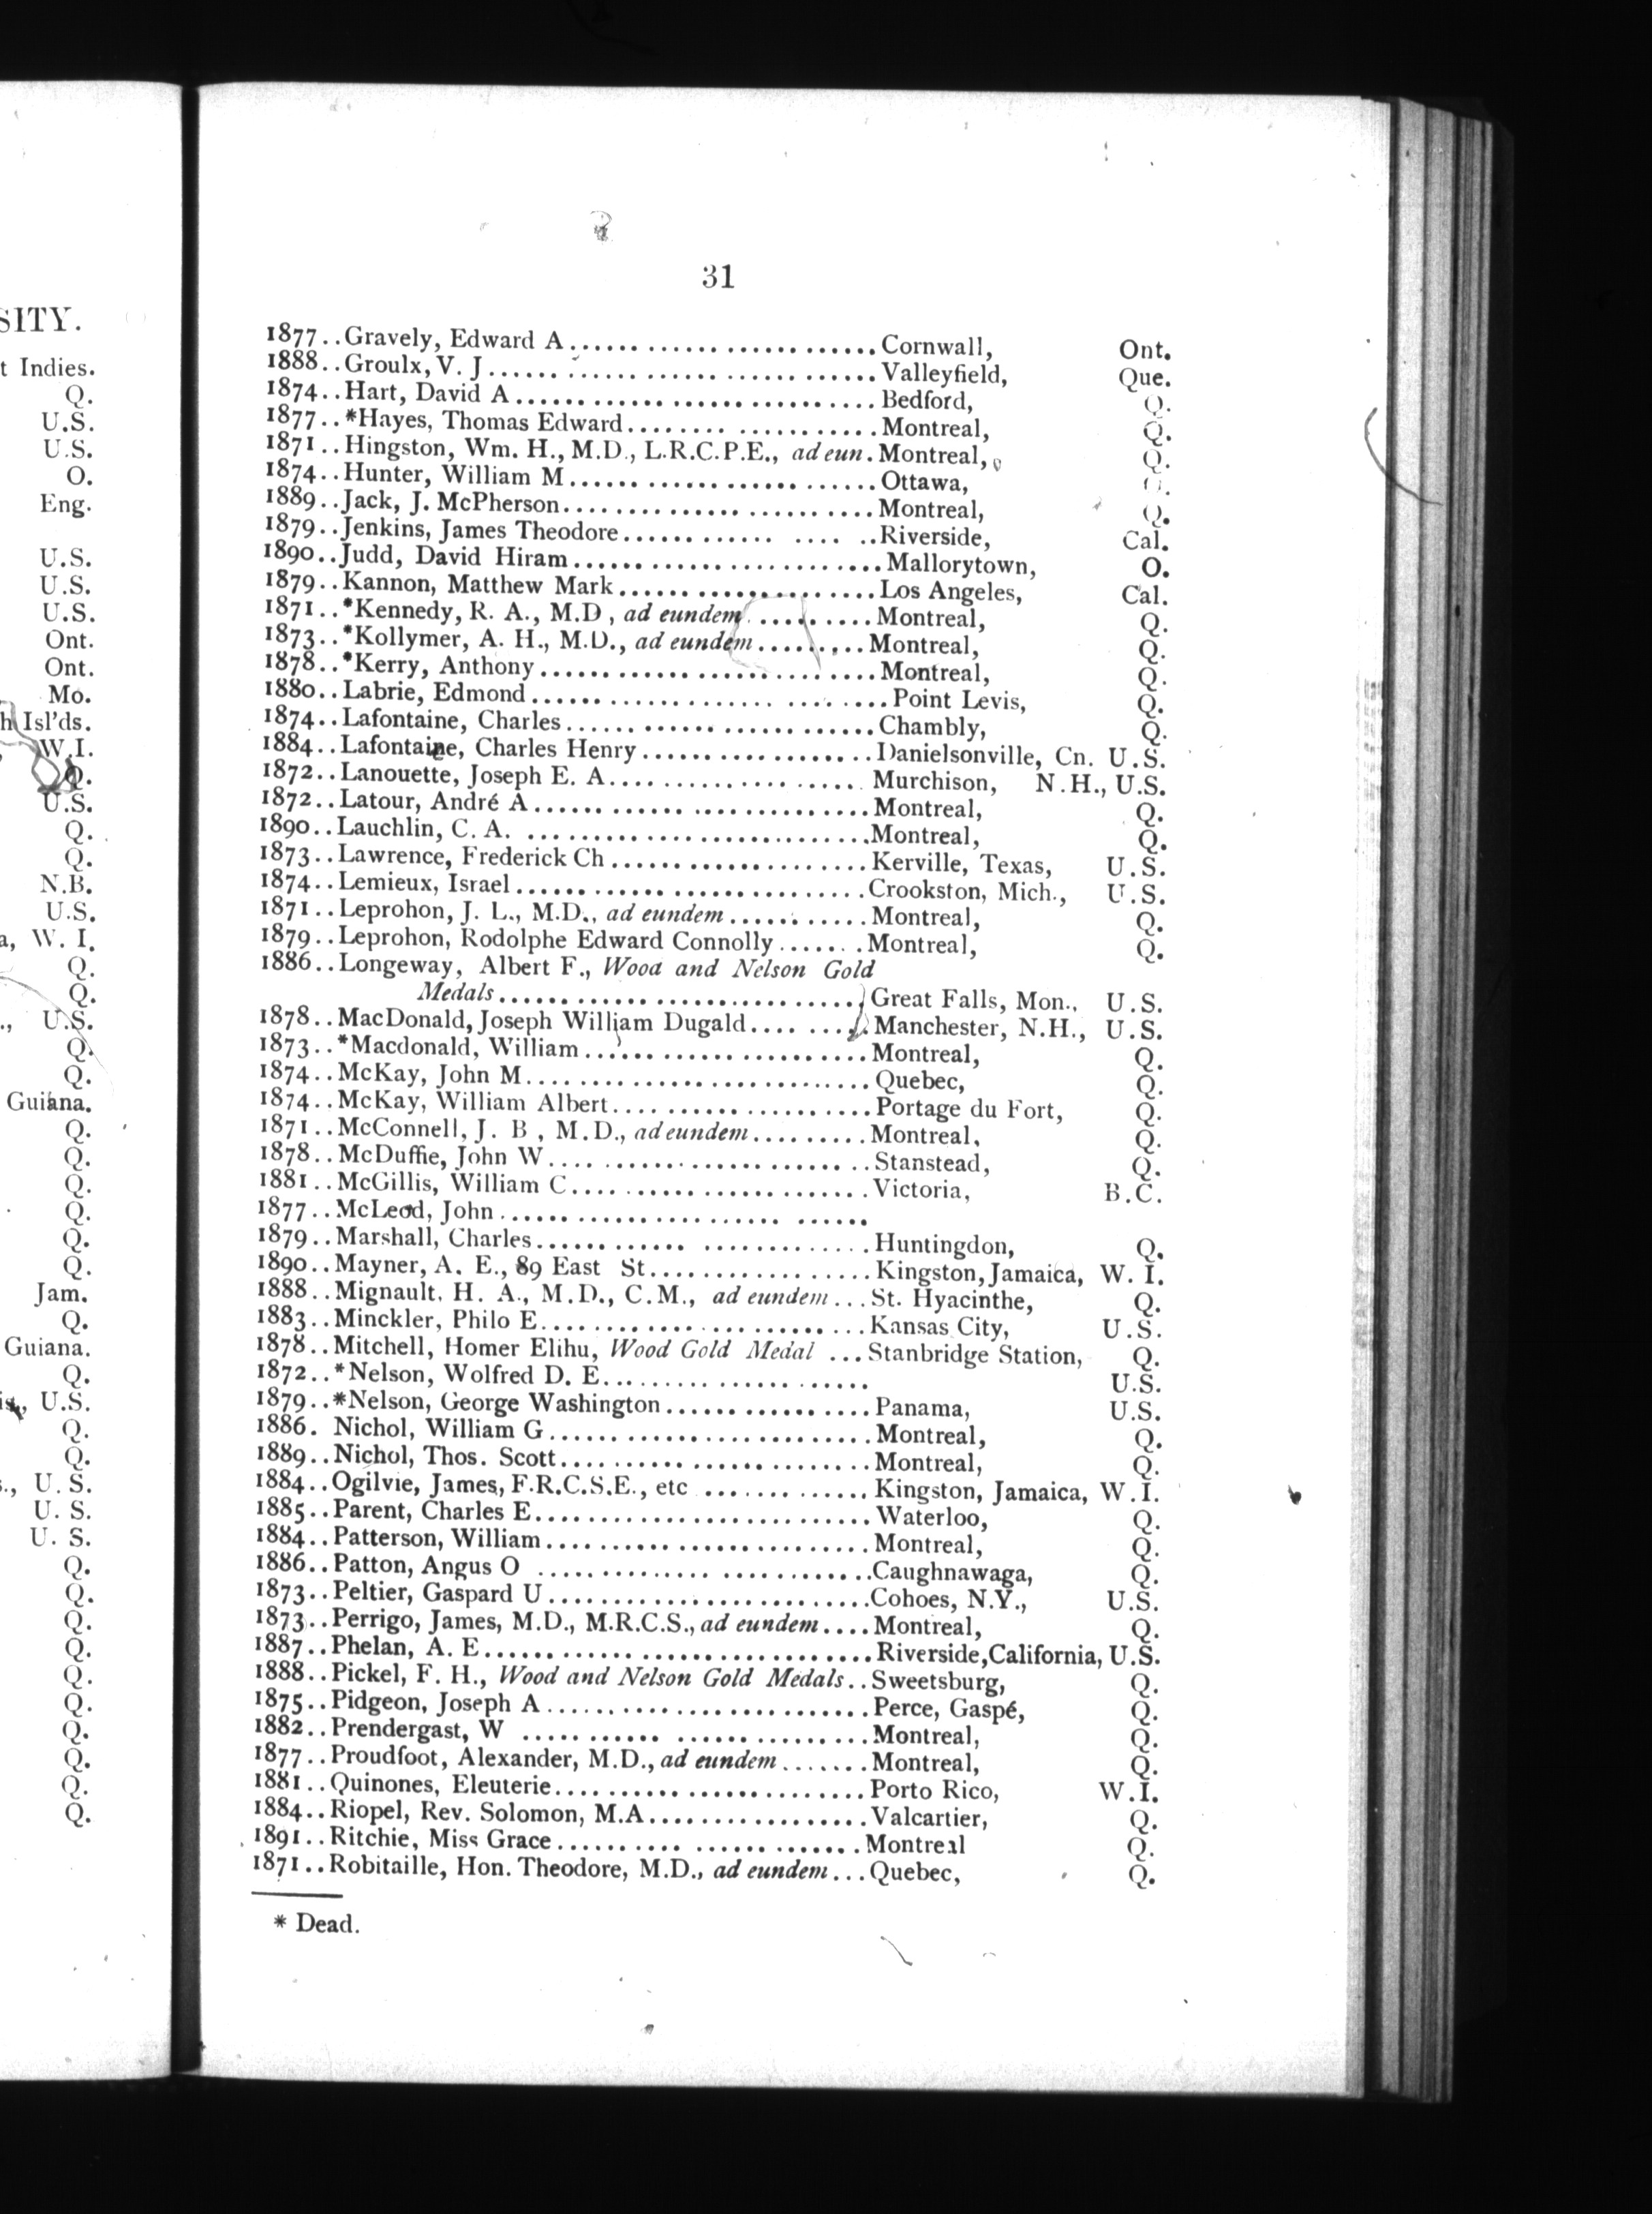 SITY.
t Indies.
Q.
U.S.
U.S.
O.
Eng.
U.S.
U.S.
U.S.
Ont.
Ont.
Mo.
h Isl'ds.
W.I.
Q.
U.S.
Q.
Q.
N.B.
U.S.
a, W. I.
Q.
Q.
., U.S.
Q.
Q.
Guiana.
Q.
Q.
Q.
Q.
Q.
Q.
Jam.
Q.
Guiana.
Q.
is, U.S.
Q.
Q.
s., U. S.
U. S.
U. S.
Q.
Q.
Q.
Q.
Q.
Q.
Q.
Q.
Q.
Q.
31
1877..Gravely, Edward A............................Cornwall, Ont.
1888..Groulx, V. J..................................Valleyfield, Que.
1874..Hart, David A................................Bedford, Q.
1877..*Hayes, Thomas Edward........ ...........Montreal, Q.
1871..Hingston, Wm. H., M.D., L.R.C.P.E., ad eun. Montreal, Q.
1874..Hunter, William M...........................Ottawa,
1889..Jack, J. McPherson............................Montreal, Q.
1879..Jenkins, James Theodore............ .... ..Riverside, Cal.
1890..Judd, David Hiram............................Mallorytown, O.
1879..Kannon, Matthew Mark.......................Los Angeles, Cal.
1871..*Kennedy, R. A., M.D, ad eundem ..........Montreal, Q.
1873..*Kollymer, A. H., M.D., ad eundem.........Montreal, Q.
1878..*Kerry, Anthony..............................Montreal, Q.
1880..Labrie, Edmond...............................Point Levis, Q.
1874..Lafontaine, Charles...........................Chambly, Q.
1884..Lafontaine, Charles Henry....................Danielsonville, Cn. U.S.
1872..Lanouette, Joseph E. A....................... Murchison, N.H., U.S.
1872..Latour, André A..............................Montreal, Q.
1890..Lauchlin, C. A. ..............................Montreal, Q.
1873..Lawrence, Frederick Ch.......................Kerville, Texas, U.S.
1874..Lemieux, Israel...............................Crookston, Mich., U.S.
1871..Leprohon, J. L., M.D., ad eundem............Montreal, Q.
1879..Leprohon, Rodolphe Edward Connolly........Montreal, Q.
1886..Longeway, Albert F., Wood and Nelson Gold
Medals................................Great Falls, Mon., U.S.
1878..MacDonald, Joseph William Dugald.... .....Manchester, N.H., U.S.
1873..*Macdonald, William.........................Montreal, Q.
1874..McKay, John M..............................Quebec, Q.
1874..McKay, William Albert.......................Portage du Fort, Q.
1871..McConnell, J. B, M.D., ad eundem..........Montreal, Q.
1878..McDuffie, John W............................Stanstead, Q.
1881..McGillis, William C..........................Victoria, B.C.
1877..McLeod, John......................... ......
1879..Marshall, Charles............ ...............Huntingdon, Q.
1890..Mayner, A. E., 89 East St...................Kingston, Jamaica, W. I.
1888..Mignault. H. A., M.D., C.M., ad eundem...St. Hyacinthe, Q.
1883..Minckler, Philo E............................Kansas City, U.S.
1878..Mitchell, Homer Elihu, Wood Gold Medal ...Stanbridge Station, Q.
1872..*Nelson, Wolfred D. E....................... U.S.
1879..*Nelson, George Washington..................Panama, U.S.
1886. Nichol, William G............................Montreal, Q.
1889..Nichol, Thos. Scott...........................Montreal, Q.
1884..Ogilvie, James, F.R.C.S.E., etc .............Kingston, Jamaica, W.I.
1885..Parent, Charles E.............................Waterloo, Q.
1884..Patterson, William............................Montreal, Q.
1886..Patton, Angus O ............................Caughnawaga, Q.
1873..Peltier, Gaspard U............................Cohoes, N.Y., U.S.
1873..Perrigo, James, M.D., M.R.C.S., ad eundem....Montreal, Q.
1887..Phelan, A. E..................................Riverside, California, U.S.
1888..Pickel, F. H., Wood and Nelson Gold Medals..Sweetsburg, Q.
1875..Pidgeon, Joseph A............................Perce, Gaspé, Q.
1882..Prendergast, W ............ .................Montreal, Q.
1877..Proudfoot, Alexander, M.D., ad eundem.......Montreal, Q.
1881..Quinones, Eleuterie...........................Porto Rico, W.I.
1884..Riopel, Rev. Solomon, M.A..................Valcartier, Q.
1891..Ritchie, Miss Grace........... ...............Montreal Q.
1871..Robitaille, Hon. Theodore, M.D., ad eundem...Quebec, Q.
* Dead.